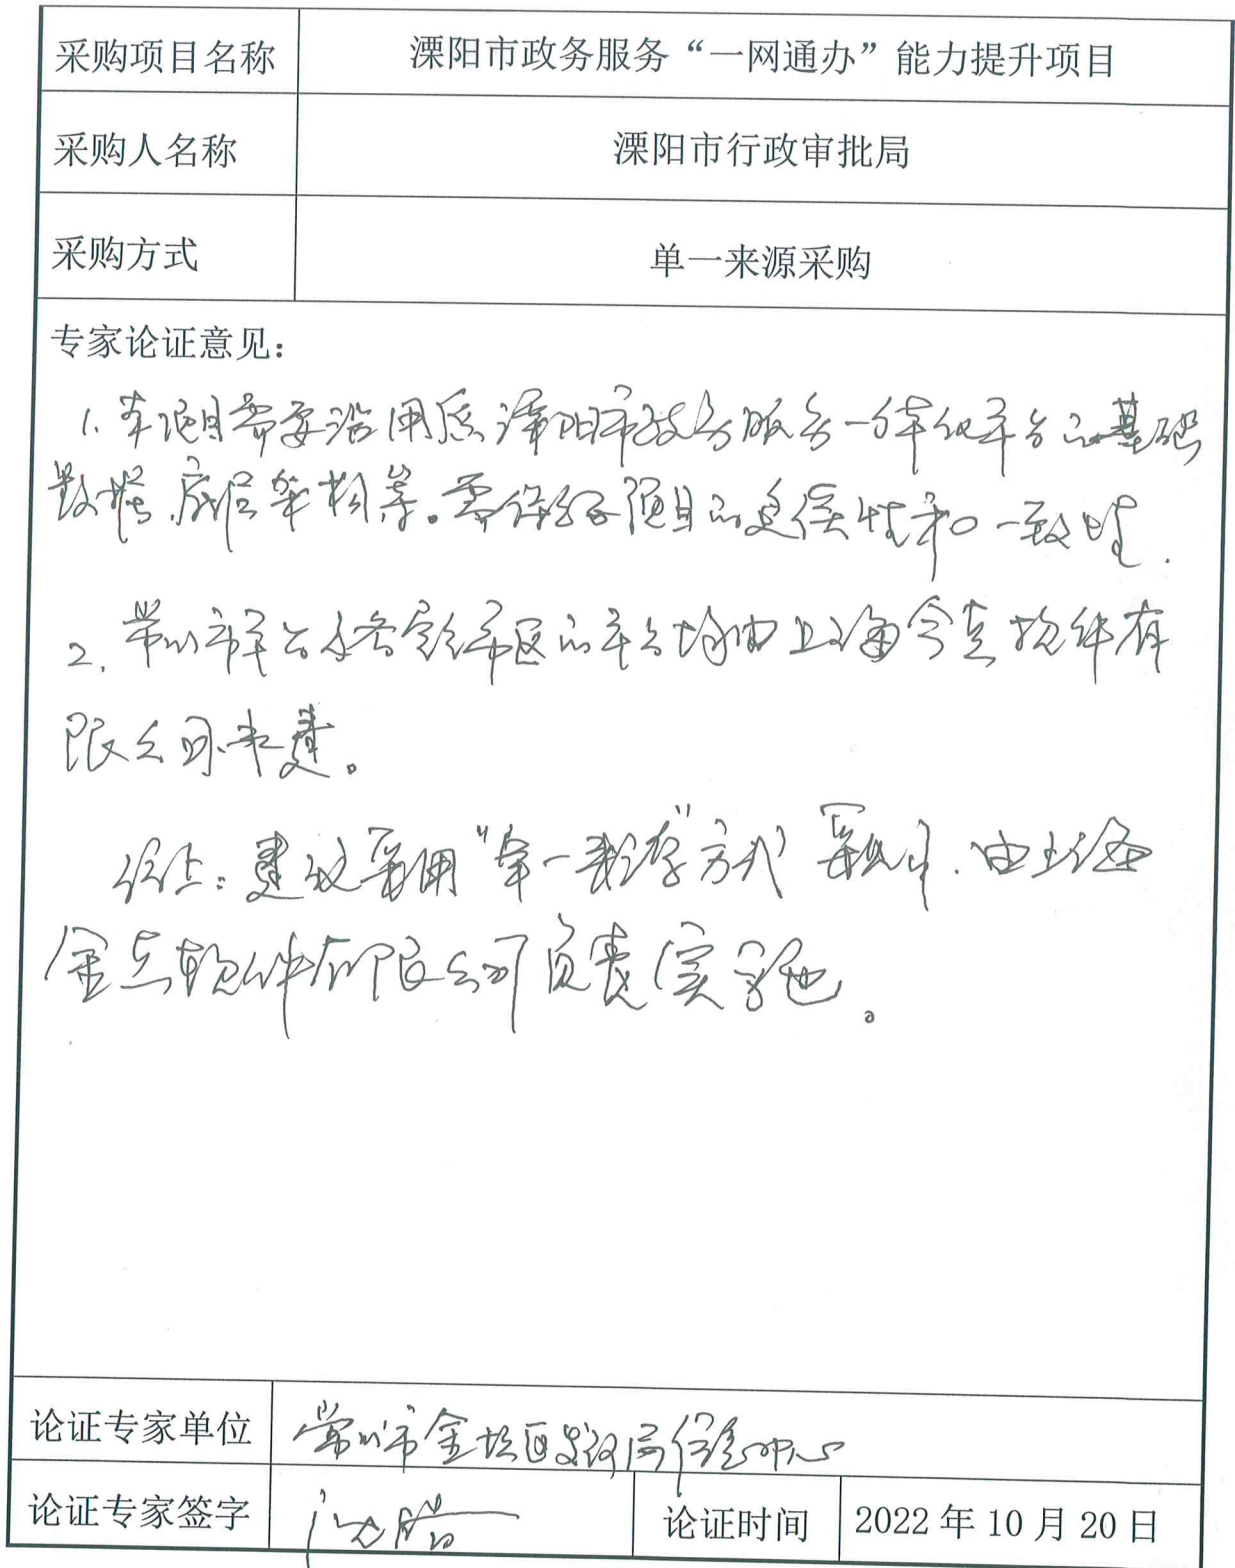 采购项目名称 溧阳市政务服务“一网通办”能力提升项目
采购人名称 溧阳市行政审批局
采购方式 单一来源采购
专家论证意见：
1. 本项目需要沿用原溧阳市政务服务一体化平台的基础
数据、底层架构等。需保证项目的延续性和一致性.
2. 常州市平台与各辖市区的平台均由上海今点软件有
限公司承建。
综上：建议采用“单一来源”方式采购，由上海
金点软件有限公司负责实施。
论证专家单位 常州市金坛区财政局信息中心
论证专家签字 论证时间 2022年10月20日